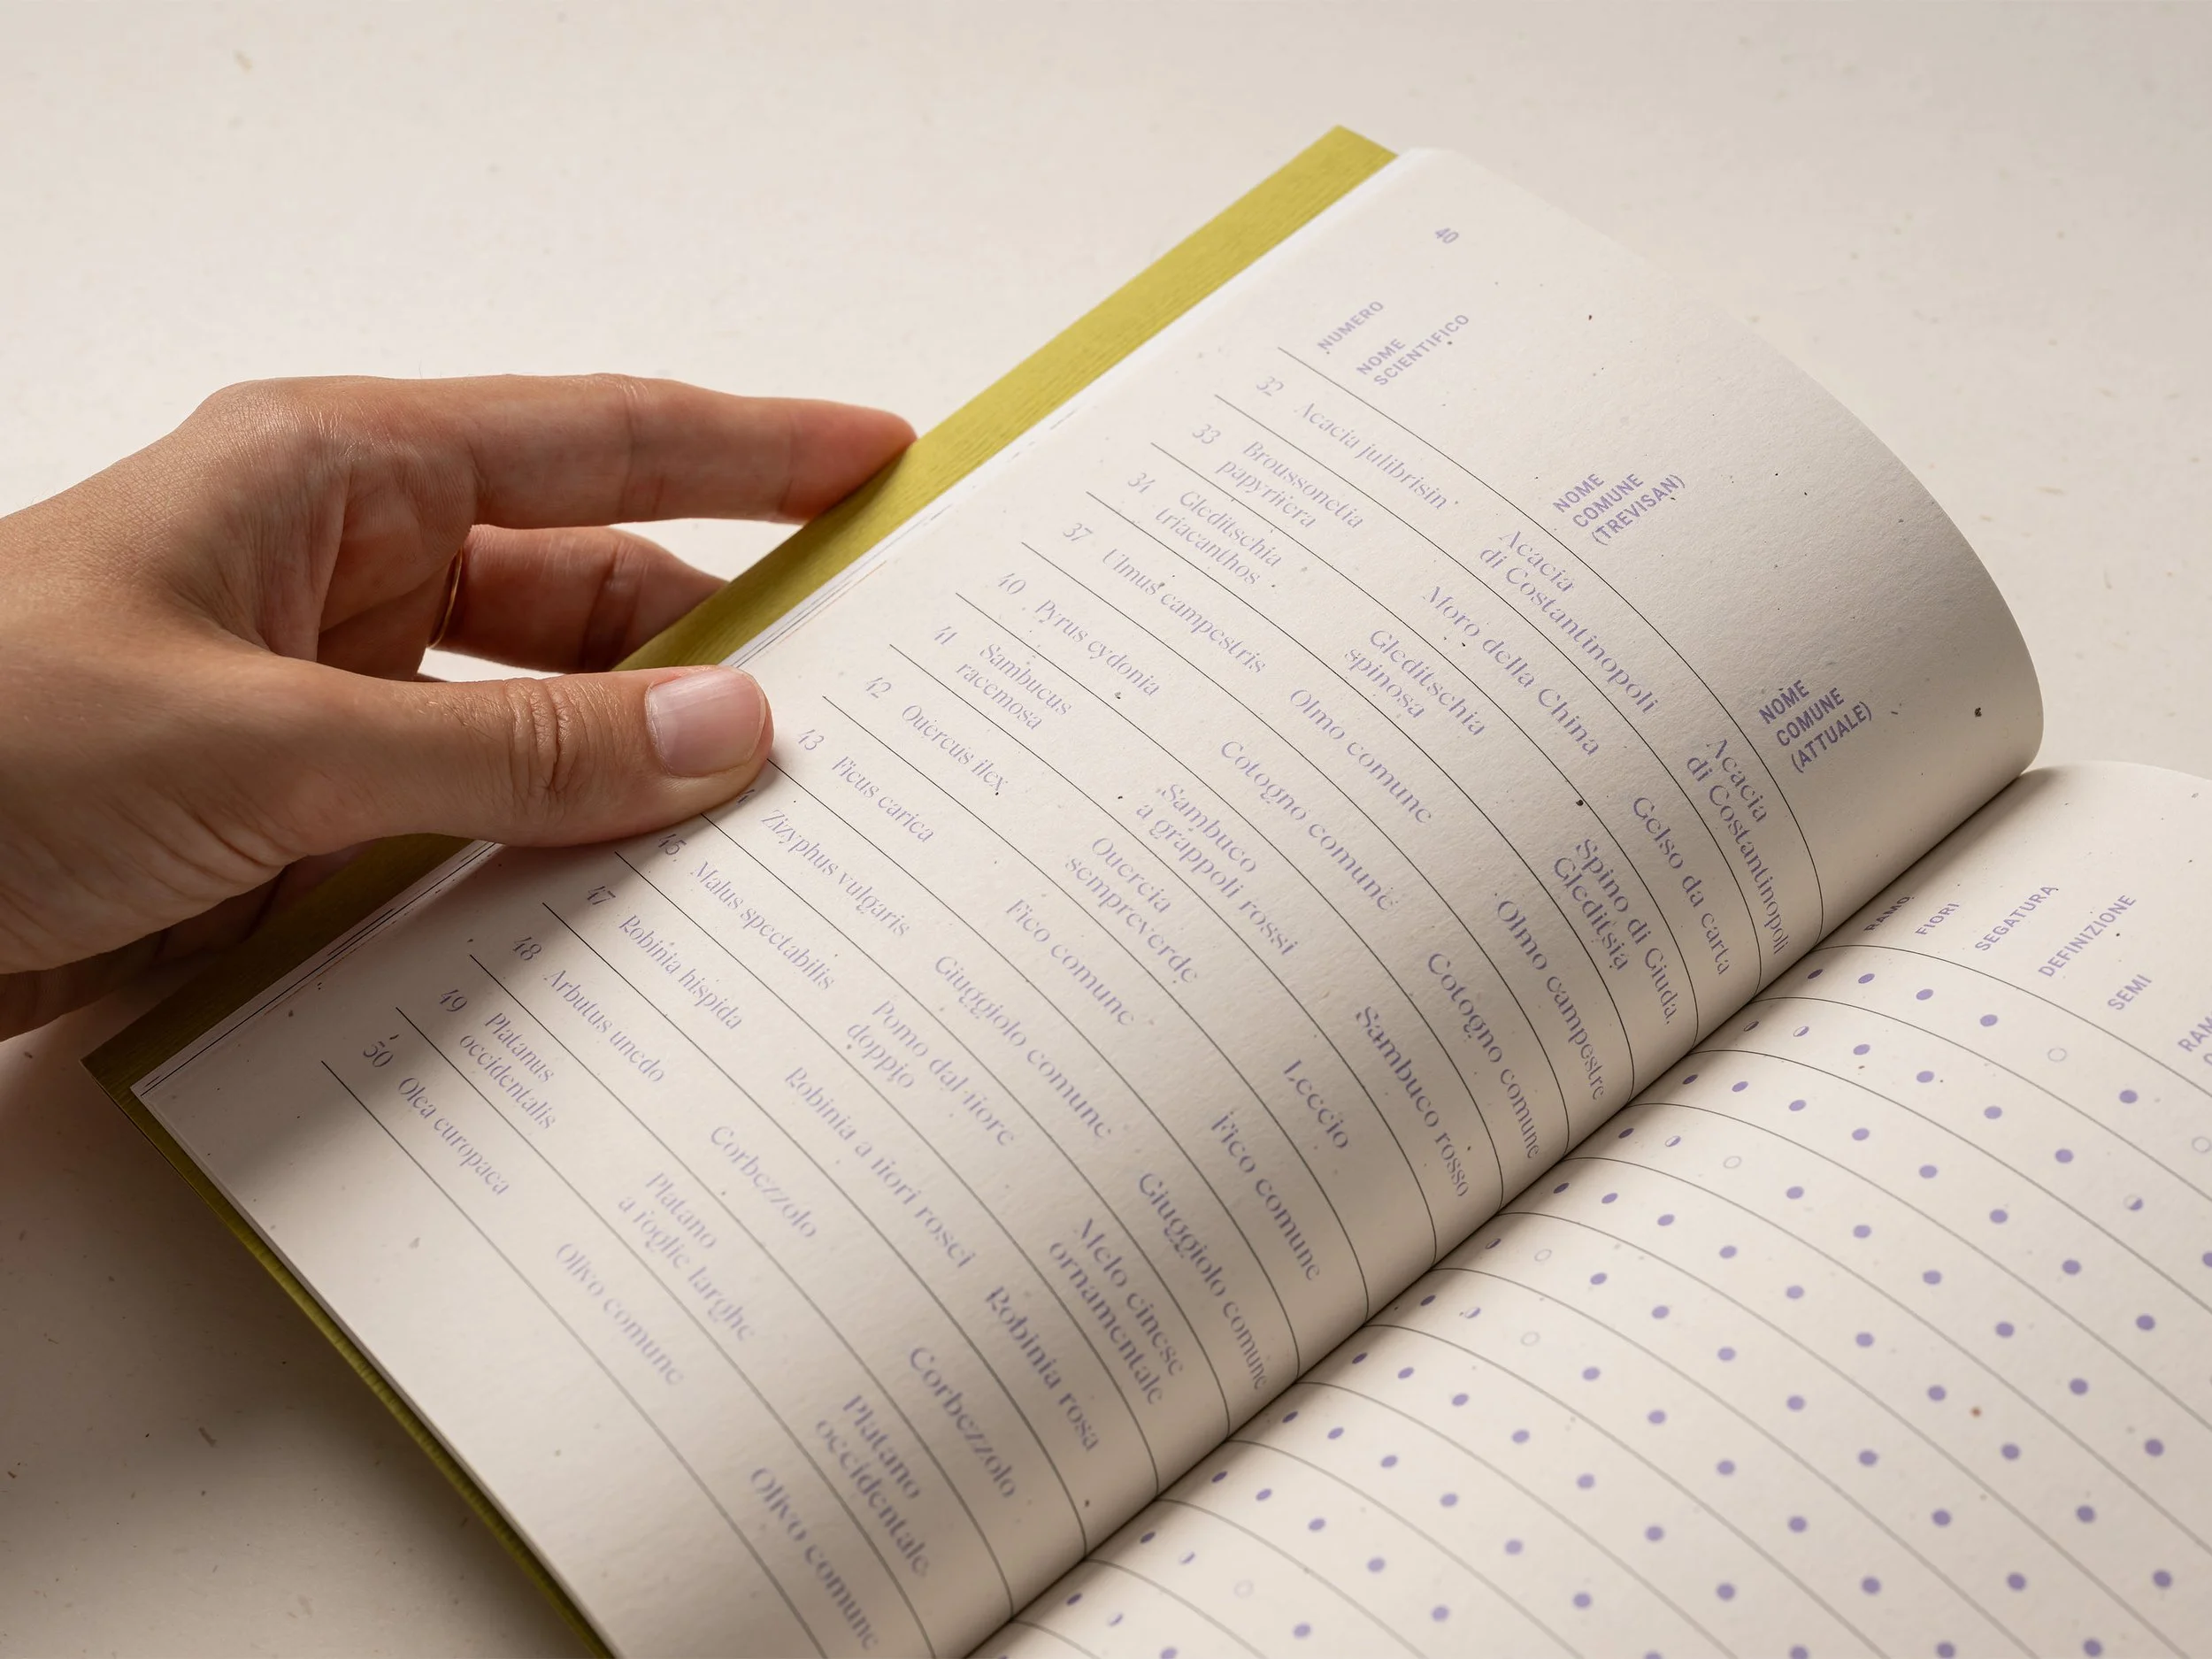 40
NUMERO
NOME
SCIENTIFICO
NOME
COMUNE
(TREVISAN)
NOME
COMUNE
(ATTUALE)
32 Acacia julibrisin Acacia
di Costantinopoli Acacia
di Costantinopoli
33 Broussonetia
papyrifera Moro della China Gelso da carta
34 Gleditschia
triacanthos Gleditschia
spinosa Spino di Giuda,
Gleditsia
37 Ulmus campestris Olmo comune Olmo campestre
40 Pyrus cydonia Cotogno comune Cotogno comune
41 Sambucus
racemosa Sambuco
a grappoli rossi Sambuco rosso
42 Quercus ilex Quercia
sempreverde Leccio
43 Ficus carica Fico comune Fico comune
Zizyphus vulgaris Giuggiolo comune Giuggiolo comune
45 Malus spectabilis Pomo dal fiore
doppio Melo cinese
ornamentale
47 Robinia hispida Robinia a fiori rosei Robinia rosa
48 Arbutus unedo Corbezzolo Corbezzolo
49 Platanus
occidentalis Platano
a foglie larghe Platano
occidentale
50 Olea europaea Olivo comune Olivo comune
RAMO
FIORI
SEGATURA
DEFINIZIONE
SEMI